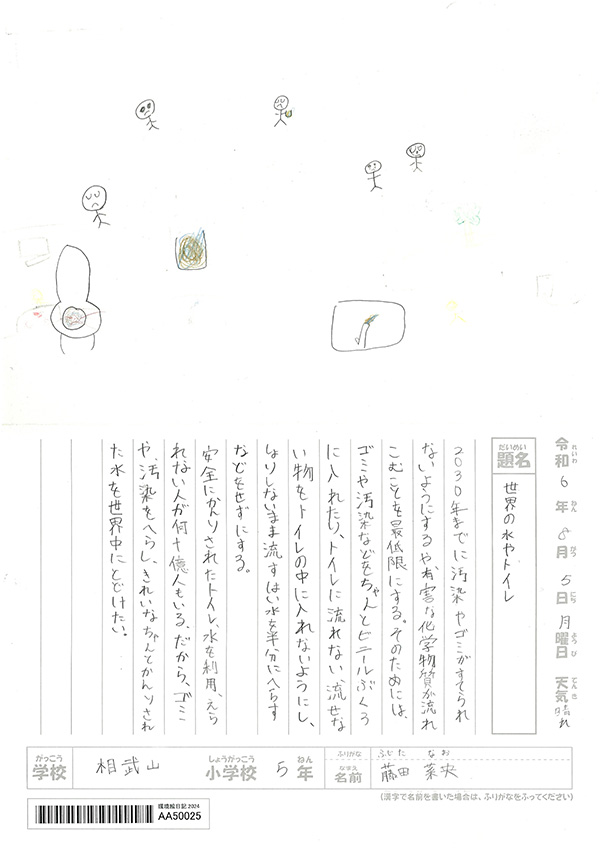 令和6年8月5日月曜日 天気晴れ
れいわ ねん がつ にち ようび てんき
だいめい
題名 世界の水やトイレ
2030年までに汚染やゴミがすてられ
ないようにするや有害な化学物質が流れ
こむことを最低限にする。そのためには、
ゴミや汚染などをちゃんとビニールぶくろ
に入れたり、トイレに流れない流せな
い物をトイレの中に入れないようにし、
しょりしないまま流すはい水を半分にへらす
などをせずにする。
安全にかんりされたトイレ、水を利用、えら
れない人が何十億人もいる。だから、ゴミ
や、汚染をへらし、きれいなちゃんとかんりされ
た水を世界中にとどけたい。
がっこう しょうがっこう ねん
学校 相武山 小学校 5年
ふりがな ふじた なお
なまえ
名前 藤田 菜央
(漢字で名前を書いた場合は、ふりがなをふってください)
環境絵日記2024
AA50025